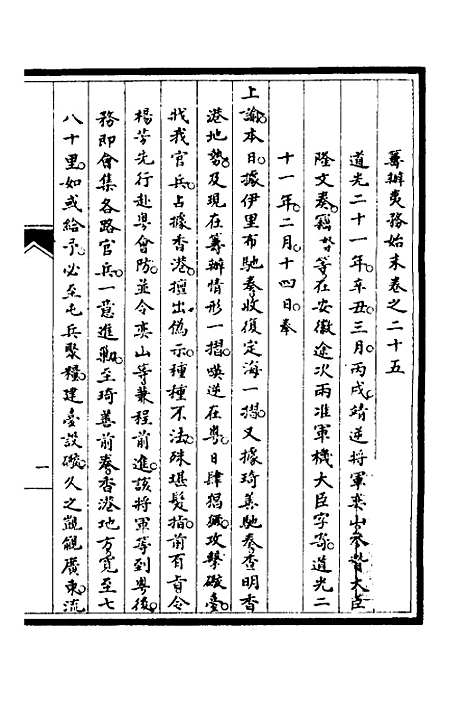 籌辦夷務始末卷之二十五
道光二十一年辛丑三月丙戌靖逆將軍奕山參贊大臣
隆文奏竊等在安徽途次兩准軍機大臣字寄道光二
十一年二月十四日奉
上諭本日據伊里布馳奏收復定海一摺又據琦善馳奏查明香
港地勢及現在籌辦情形一摺㗸逆在粵日肆猖獗攻擊礮臺
戕我官兵占據香港擅出偽示種種不法殊堪髮指前有旨令
楊芳先行赴粵會防並令奕山等兼程前進該將軍等到粵後
務即會集各路官兵一意進勦至琦善前奏香港地方寬至七
八十里如或給予必至屯兵聚糧建臺設礮久之覬覦廣東流
一